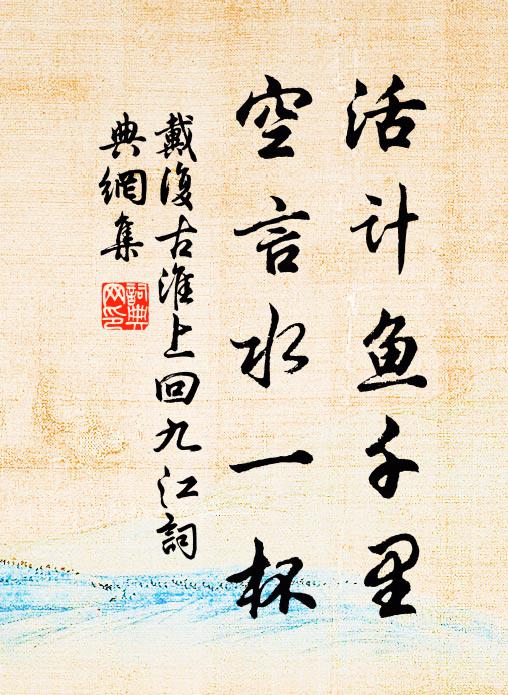 活计鱼千里
空言水一杯
戴復古淮上回九江詞
典網集
詞典网印